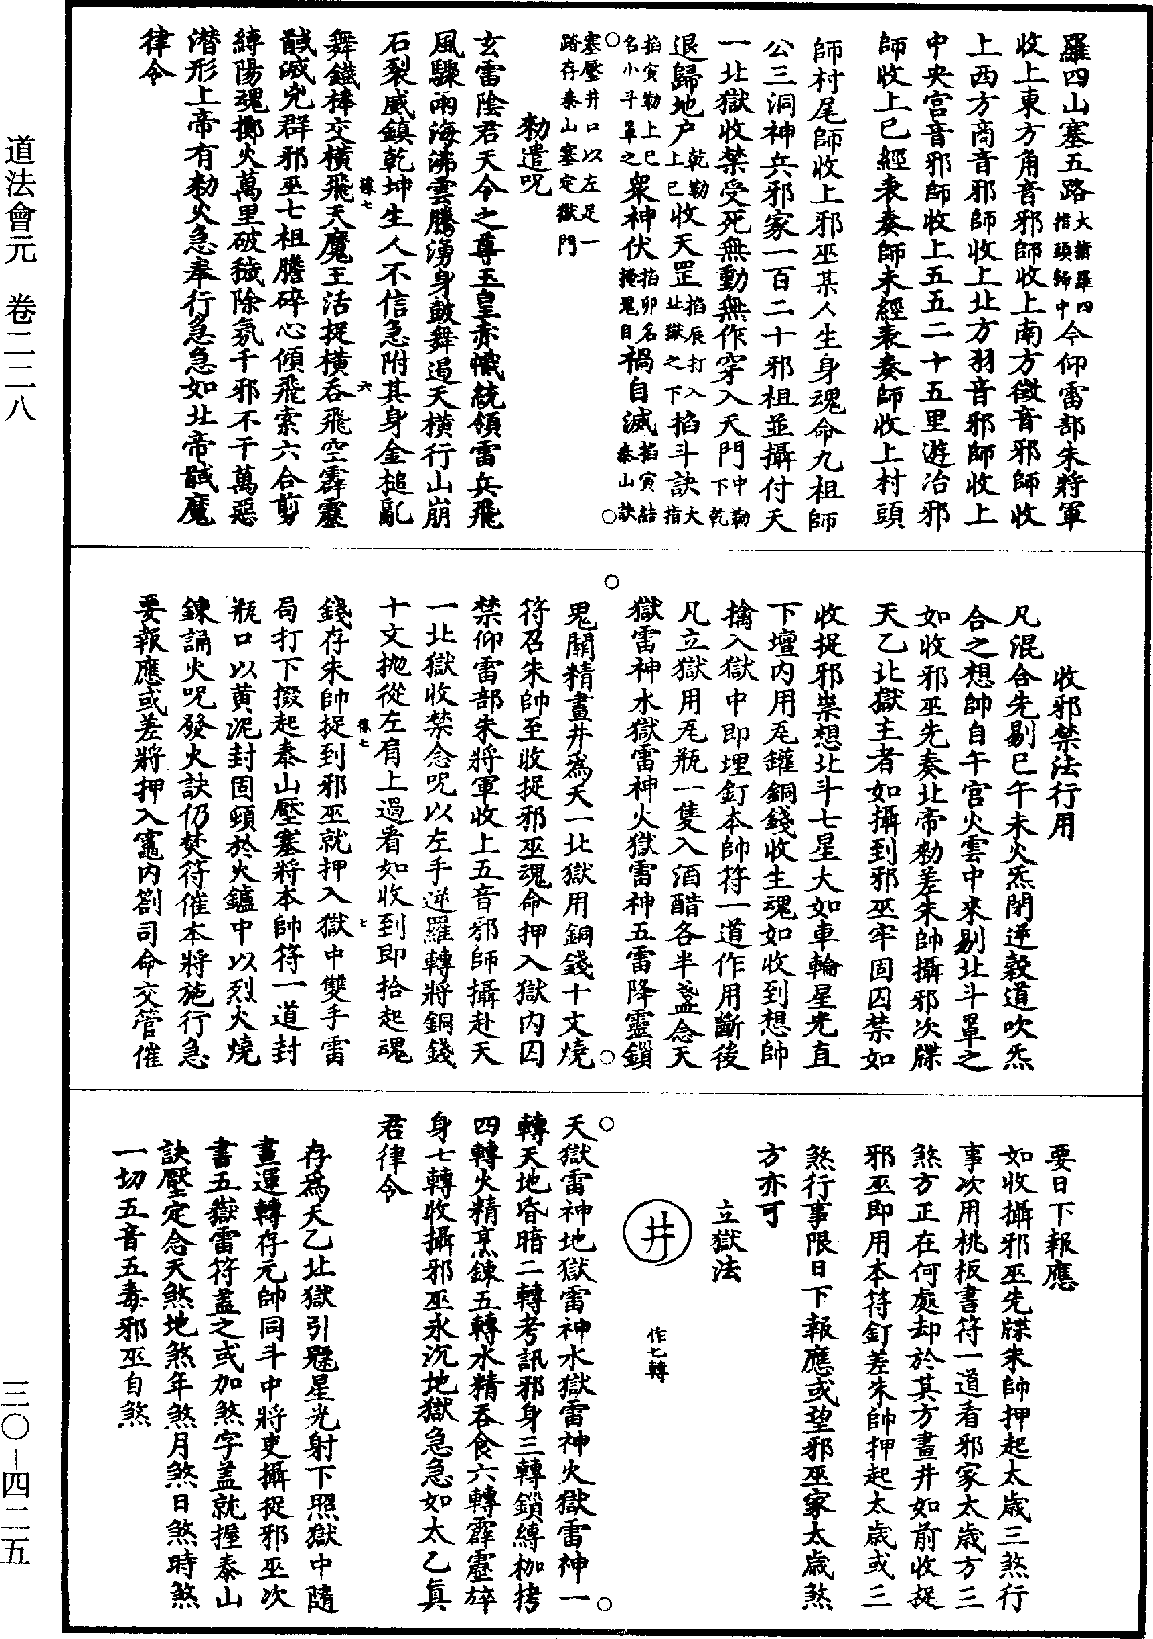 羅四山塞五路大齶羅四指頭歸中今仰雷部朱將軍
收上東方角音邪師收上南方徵音邪師收
上西方商音邪師收上北方羽音邪師收上
中央宮音邪師收上五五二十五里遊冶邪
師收上已經表奏師未經表奏師收上村頭
師村尾師收上邪巫某人生身魂命九祖師
公三洞神兵邪家一百二十邪祖並攝付天
一北獄收禁受死無動無作穿入天門中勒下乾
退歸地户乾勒上巳收天罡掐辰打入北獄之下掐斗訣大指
掐寅勒上巳名小斗罩之衆神伏掐卯名掩鬼目禍自滅掐寅結泰山訣
○塞壓井口以左足一踏存泰山塞定獄門○
勑遣呪
玄雷陰君天令之尊玉皇赤幟統領雷兵飛
風驟雨海沸雲騰湧身鼓舞遏天橫行山崩
石裂威鎮乾坤生人不信急附其身金槌亂
舞鐵棒交橫飛天魔王活捉橫吞飛空霹靂
馘滅兇群邪巫七祖膽碎心傾飛索六合剪
縛陽魂擲火萬里破穢除氛千邪不干萬惡
潛形上帝有勑火急奉行急急如北帝馘魔
律令
收邪禁法行用
凡混合先剔巳午未火炁閉逆轂道吹炁
合之想帥自午宮火雲中來剔北斗罩之
如收邪巫先奏北帝勑差朱帥攝邪次牒
天乙北獄主者如攝到邪巫牢固囚禁如
收捉邪祟想北斗七星大如車輪星光直
下壇內用瓦鑵銅錢收生魂如收到想帥
擒入獄中即埋釘本帥符一道作用斷後
凡立獄用瓦瓶一隻入酒醋各半盞念天
獄雷神水獄雷神火獄雷神五雷降靈鎖
○鬼關精畫井爲天一北獄用銅錢十文燒○
符召朱帥至收捉邪巫魂命押入獄內囚
禁仰雷部朱將軍收上五音邪師攝赴天
一北獄收禁念呪以左手逆羅轉將銅錢
十文拋從左肩上過看如收到即拾起魂
錢存朱帥捉到邪巫就押入獄中雙手雷
局打下掇起泰山壓塞將本帥符一道封
瓶口以黃泥封固頭於火鑪中以烈火燒
鍊誦火呪發火訣仍焚符催本將施行急
要報應或差將押入竈內劄司命交管催
要日下報應
如收攝邪巫先牒朱帥押起太歲三煞行
事次用桃板書符一道看邪家太歲方三
煞方正在何處却於其方畫井如前收捉
邪巫即用本符釘差朱帥押起太歲或三
煞行事限日下報應或望邪巫家太歲煞
方亦可
立獄法
井
作七轉
○天獄雷神地獄雷神水獄雷神火獄雷神一○
轉天地昏暗二轉考訊邪身三轉鎖縛枷拷
四轉火精烹鍊五轉水精吞食六轉霹靂碎
身七轉收攝邪巫永沉地獄急急如太乙真
君律令
存爲天乙北獄引魁星光射下照獄中隨
畫運轉存元帥同斗中將吏攝捉邪巫次
書五嶽雷符蓋之或加煞字蓋就握泰山
訣壓定念天煞地煞年煞月煞日煞時煞
一切五音五毒邪巫自煞
道法會元　卷二二八
三〇－四二五